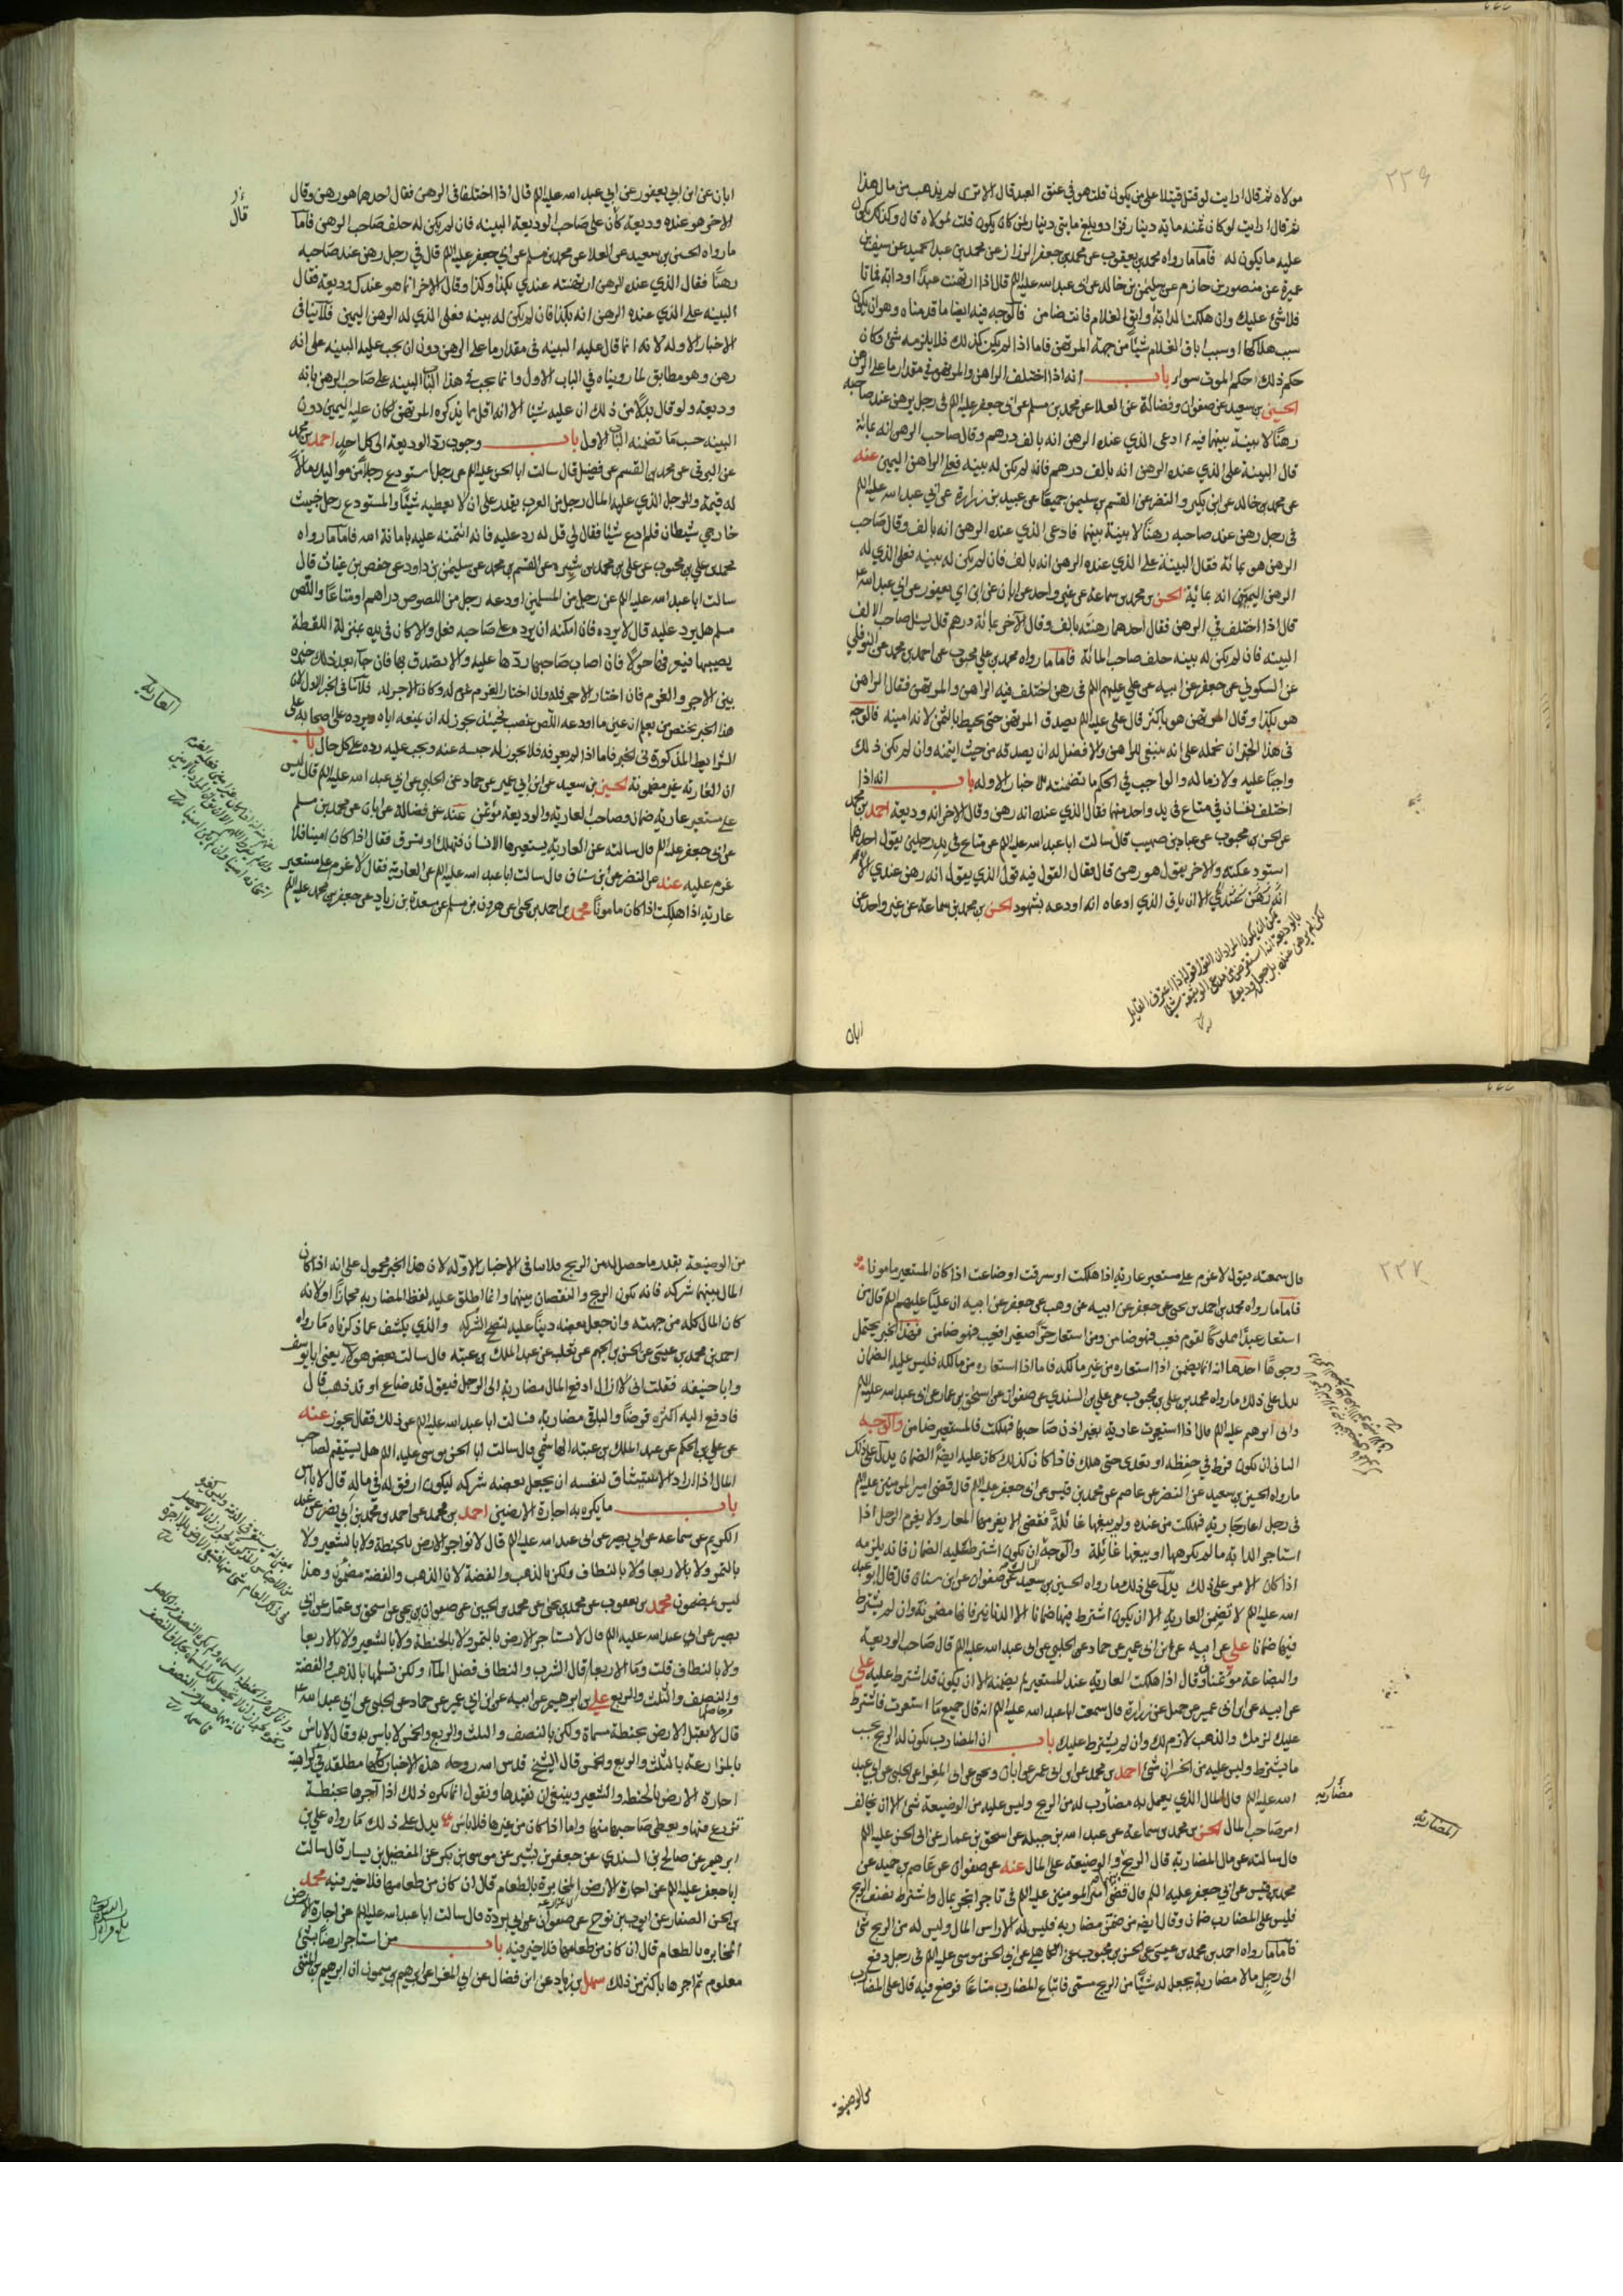 ٢٢٦
مولاه ثم قال ارايت لو قتل قتيلا على من يكون قلت هو في عنق العبد قال الا ترى لم يذهب من مال هذا
ثم قال ارايت لو كان ثمنه مائة دينار فزاد وبلغ مايتي دينار لمن كان يكون قلت لمولاه قال وكذلك يكون
عليه ما يكون له فاما ما رواه محمد بن يعقوب عن محمد بن جعفر الرزاز عن محمد بن عبد الحميد عن سيف بن
عميرة عن منصور بن حازم عن سليمن بن خالد عن ابى عبد الله عليه السلم قال اذا ارتهنت عبدا او دابة فماتا
فلا شئ عليك وان هلكت الدابة او ابق الغلام فانت ضامن فالوجه فيه ايضا ما قدمناه وهو ان يكون
سبب هلاكها او سبب اباق الغلام شيئا من جهة المرتهن فاما اذا لم يكن كذلك فلا يلزمه شئ وكان
حكم ذلك حكم الموت سواء باب انه اذا اختلف الراهن والمرتهن في مقدار ما على الرهن
الحسين بن سعيد عن صفوان وفضالة عن العلا عن محمد بن مسلم عن ابى جعفر عليه السلم فى رجل يرهن عند صاحبه
رهنا لا بينة بينهما فيه ادعى الذي عنده الرهن انه بالف درهم وقال صاحب الرهن انه بمائة
قال البينة على الذي عنده الرهن انه بالف درهم فان لم يكن له بينه فعلى الراهن اليمين عنه
عن محمد بن خالد عن ابن بكير والنضر عن القسم بن سليمن جميعا عن عبيد بن زرارة عن ابي عبد الله عليه السلم
فى رجل رهن عند صاحبه رهنا لا بينة بينهما فادعى الذي عنده الرهن انه بالف وقال صاحب
الرهن هو بمائة فقال البينة على الذي عنده الرهن انه بالف فان لم يكن له بينه فعلى الذي له
الرهن اليمين انه بمائة الحسن بن محمد بن سماعة عن غير واحد عن ابان عن ابن ابي يعفور عن ابي عبد الله
قال اذا اختلف في الرهن فقال احدهما رهنته بالف وقال الآخر بمائة درهم قال يسئل صاحب الالف
البينه فان لم يكن له بينه حلف صاحب المائة فاما ما رواه محمد بن علي بن محبوب عن احمد بن محمد عن النوفلي
عن السكوني عن جعفر عن ابيه عن علي عليهم السلم فى رهن اختلف فيه الراهن والمرتهن فقال الراهن
هو بكذا وقال المرتهن هو باكثر قال علي عليه السلم يصدق المرتهن حتى يحيط بالثمن لانه امينه فالوجه
فى هذا الخبر ان نحمله على انه ينبغي للراهن والافضل له ان يصدقه من حيث ايتمنه وان لم يكن ذلك
واجبا عليه ولازما له والواجب في الحكم ما تضمنته الاخبار الاوله باب انه اذا
اختلف نفسان في متاع فى يد واحد منهما فقال الذي عنده انه رهن وقال الاخر انه وديعة احمد بن محمد
عن الحسن بن محبوب عن عباد بن صهيب قال سالت ابا عبد الله عليه السلم عن متاع في يد رجلين يقول احدهما
استودعكته والاخر يقول هو رهن قال فقال القول فيه قول الذي يقول انه رهن عندي الا
ان ياتى الذي ادعاه انه اودعه بشهود الحسن بن محمد بن سماعة عن غير واحد عن
ابان
ابان عن ابن ابي يعفور عن ابي عبد الله عليه السلم قال اذا اختلفا في الرهن فقال احدهما هو رهن وقال
الاخر هو عنده وديعة كان على صاحب الوديعة البينه فان لم يكن له حلف صاحب الرهن فاما
قال
ما رواه الحسين بن سعيد عن العلا عن محمد بن مسلم عن ابي جعفر عليه السلم قال في رجل رهن عند صاحبه
رهنا فقال الذي عنده الرهن ارتهنته عندي بكذا وكذا وقال الاخر انما هو عندك وديعة فقال
البينه على الذي عنده الرهن انه بكذا فان لم يكن له بينه فعلى الذي له الرهن اليمين فلا ينافى
الاخبار الاوله لانه انما قال عليه البينه فى مقدار ما على الرهن دون ان يجب عليه البينه على انه
رهن وهو مطابق لما رويناه في الباب الاول وانما يجب في هذا الباب البينه على صاحب الرهن بانه
وديعة ولو قال بدلا من ذلك ان عليه شيئا الا انه اقل مما يذكره المرتهن لكان عليه اليمين دون
البينه حسب ما تضمنه الباب الاول باب وجوب رد الوديعة الى كل احد احمد بن محمد
عن البرقى عن محمد بن القسم عن فضيل قال سالت ابا الحسن عليه السلم عن رجل استودع رجلا من مواليه مالا
له قيمة والرجل الذي عليه المال رجل من العرب يقدر على ان لا يعطيه شيئا والمستودع رجل خبيث
خارجي شيطان فلم ادع شيئا فقال لي قل له رد عليه فانه ائتمنه عليه بامانة الله فاما ما رواه
محمد بن علي بن محبوب عن علي بن محمد بن شيره عن القسم بن محمد عن سليمن بن داود عن حفص بن غياث قال
سالت ابا عبد الله عليه السلم عن رجل من المسلمين اودعه رجل من اللصوص دراهم او متاعا واللص
مسلم هل يرد عليه قال لا يرده فان امكنه ان يرده على صاحبه فعل والا كان فى يده بمنزلة اللقطة
يصيبها فيعرفها حولا فان اصاب صاحبها ردها عليه والا تصدق بها فان جاء بعد ذلك خيره
بين الاجر والغرم فان اختار الاجر فله وان اختار الغرم غرم له وكان الاجر له فلا ينافى الخبر الاول لان
هذا الخبر يختص من يعلم ان عين ما اودعه اللص غصب فحينئذ يجوز له ان يمنعه اياه ويرده على اصحابه على
الشرايط المذكورة فى الخبر فاما اذا لم يعرفه فلا يجوز له حبسه عنه ويجب عليه رده على كل حال باب
العارية
ان العارية غير مضمونة الحسين بن سعيد عن ابن ابي عمير عن حماد عن الحلبي عن ابي عبد الله عليه السلم قال ليس
على مستعير عارية ضمان وصاحب العارية والوديعة مؤتمن عنه عن فضالة عن ابان عن محمد بن مسلم
عن ابى جعفر عليه السلم قال سالته عن العارية يستعيرها الانسان فتهلك او تسرق فقال اذا كان امينا فلا
غرم عليه عنه عن النضر عن ابن سنان قال سالت ابا عبد الله عليه السلم عن العارية فقال لا غرم على مستعير
عارية اذا هلكت اذا كان مامونا محمد بن احمد بن يحيى عن هرون بن مسلم عن مسعدة بن زياد عن جعفر بن محمد عليه السلم
٢٢٧
قال سمعته يقول لا غرم على مستعير عارية اذا هلكت او سرقت او ضاعت اذا كان المستعير مامونا
فاما ما رواه محمد بن احمد بن يحيى عن جعفر عن ابيه عن وهب عن جعفر عن ابيه ان عليا عليهم السلم قال من
استعار عبدا مملوكا لقوم فعيب فهو ضامن ومن استعار حرا صغيرا فعيب فهو ضامن فهذا الخبر يحتمل
وجوها احدها انه انما يضمن اذا استعاره من غير مالكه فاما اذا استعاره من مالكه فليس عليه الضمان
يدل على ذلك ما رواه محمد بن علي بن محبوب عن علي بن السندي عن صفوان عن اسحق بن عمار عن ابى عبد الله عليه السلم
وابى ابرهيم عليه السلم قال اذا استعيرت عارية بغير اذن صاحبها فهلكت فالمستعير ضامن والوجه
الثانى ان يكون فرط في حفظه او تعدى حتى هلك فاذا كان كذلك كان عليه ايضا الضمان يدل على ذلك
ما رواه الحسين بن سعيد عن النضر عن عاصم عن محمد بن قيس عن ابى جعفر عليه السلم قال قضى امير المومنين عليه السلم
فى رجل اعار جارية فهلكت من عنده ولم يبغها غائلة فقضى الا يغرمها المعار ولا يغرم الرجل اذا
استاجر الدابة ما لم يكرهها او يبغها غائلة والوجه ان يكون اشترط عليه الضمان فانه يلزمه
اذا كان الامر على ذلك يدل على ذلك ما رواه الحسين بن سعيد عن صفوان عن ابن سنان قال قال ابو عبد
الله عليه السلم لا تضمن العارية الا ان يكون اشترط فيها ضمانا الا الدنانير فانها مضمونة وان لم يشترط
فيها ضمانا علي عن ابيه عن ابن ابى عمير عن حماد عن الحلبي عن ابى عبد الله عليه السلم قال صاحب الوديعة
والبضاعة مؤتمنان وقال اذا هلكت العارية عند المستعير لم يضمنه الا ان يكون قد اشترط عليه علي
عن ابيه عن ابن ابى عمير عن جميل عن زرارة قال سمعت ابا عبد الله عليه السلم انه قال جميع ما استعرت فاشترط
عليك لزمك والذهب لازم لك وان لم يشترط عليك باب ان المضارب يكون له الربح بحسب
ما يشترط وليس عليه من الخسران شئ احمد بن محمد عن ابن ابى عمير عن ابان ويحيى عن ابى المغرا عن الحلبي عن ابي عبد
الله عليه السلم قال المال الذي يعمل به مضاربة له من الربح وليس عليه من الوضيعة شئ الا ان يخالف
مضاربة
المضاربة
امر صاحب المال الحسن بن محمد بن سماعة عن عبد الله بن جبلة عن اسحق بن عمار عن ابى الحسن عليه السلم
قال سالته عن مال المضاربة قال الربح بينهما والوضيعة على المال عنه عن صفوان عن عاصم بن حميد عن
محمد بن قيس عن ابي جعفر عليه السلم قال قضى امير المومنين عليه السلم فى تاجر اتجر بمال واشترط نصف الربح
فليس على المضارب ضمان وقال ايضا من ضمن مضاربه فليس له الا راس المال وليس له من الربح شئ
فاما ما رواه احمد بن محمد بن عيسى عن الحسن بن محبوب عن الكاهلي عن ابى الحسن موسى عليه السلم فى رجل دفع
الى رجل مالا مضاربة يجعل له شيئا من الربح مسمى فابتاع المضارب متاعا فوضع فيه قال على المضارب
من الوضيعة
من الوضيعة بقدر ما حصل له من الربح فلا ينافى الاخبار الاوله لان هذا الخبر محمول على انه اذا كان
المال بينهما شركة فانه يكون الربح والنقصان بينهما وانما اطلق عليه لفظ المضاربه مجازا او لانه
كان المال كله من جهته وان جعل بعضه دينا عليه لتصح الشركة والذي يكشف عما ذكرناه ما رواه
احمد بن محمد بن عيسى عن الحسن بن الجهم عن ثعلبة عن عبد الملك بن عتبة قال سالت بعض هولاء يعنى ابا يوسف
وابا حنيفه فقلت انى لا ازال ادفع المال مضاربة الى الرجل فيقول قد ضاع او قد ذهب قال
فادفع اليه اكثره قرضا والباقى مضاربة فسالت ابا عبد الله عليه السلم عن ذلك فقال يجوز عنه
عن علي بن الحكم عن عبد الملك بن عتبه الهاشمي قال سالت ابا الحسن موسى عليه السلم هل يستقيم لصاحب
المال اذا اراد الاستيثاق لنفسه ان يجعل بعضه شركة ليكون اوفق له في ماله قال لا باس
باب ما يكره به اجارة الارضين احمد بن محمد عن احمد بن محمد بن ابي نصر عن عبد
الكريم عن سماعة عن ابي بصير عن ابى عبد الله عليه السلم قال لا تواجر الارض بالحنطة ولا بالشعير ولا
بالتمر ولا بالاربعا ولا بالنطاف ولكن بالذهب والفضة لان الذهب والفضة مضمون وهذا
ليس بمضمون محمد بن يعقوب عن محمد بن يحيى عن محمد بن الحسين عن صفوان بن يحيى عن اسحق بن عمار عن ابي
بصير عن ابي عبد الله عليه السلم قال لا تستاجر الارض بالتمر ولا بالحنطة ولا بالشعير ولا بالاربعا
ولا بالنطاف قلت وما الاربعا قال الشرب والنطاف فضل الماء ولكن تسلمها بالذهب والفضة
والنصف والثلث والربع علي بن ابرهيم عن ابيه عن ابن ابى عمير عن حماد عن الحلبي عن ابي عبد الله
قال لا تقبل الارض بحنطة مسماة ولكن بالنصف والثلث والربع والخمس لا باس به وقال لا باس
بالمزارعة بالثلث والربع والخمس قال الشيخ قدس الله روحه هذه الاخبار كلها مطلقة في كراهية
اجارة الارض بالحنطه والشعير وينبغي ان نقيدها ونقول انما نكره ذلك اذا آجرها بحنطة
تزرع فيها ويعطى صاحبها منها واما اذا كان من غيرها فلا باس يدل على ذلك ما رواه علي بن
ابرهيم عن صالح بن السندي عن جعفر بن بشير عن موسى بن بكر عن المفضيل بن يسار قال سالت
ابا جعفر عليه السلم عن اجارة الارض المخابرة بالطعام قال ان كان من طعامها فلا خير فيه محمد
بن الحسن الصفار عن ايوب بن نوح عن صفوان عن ابي بردة قال سالت ابا عبد الله عليه السلم عن اجارة الارض
المخابره بالطعام قال ان كان من طعامها فلا خير فيه باب من استاجر ارضا بشئ
معلوم ثم اجرها باكثر من ذلك سهل بن زياد عن ابن فضال عن ابي المغرا عن ابرهيم بن ميمون ان ابرهيم بن المثنى